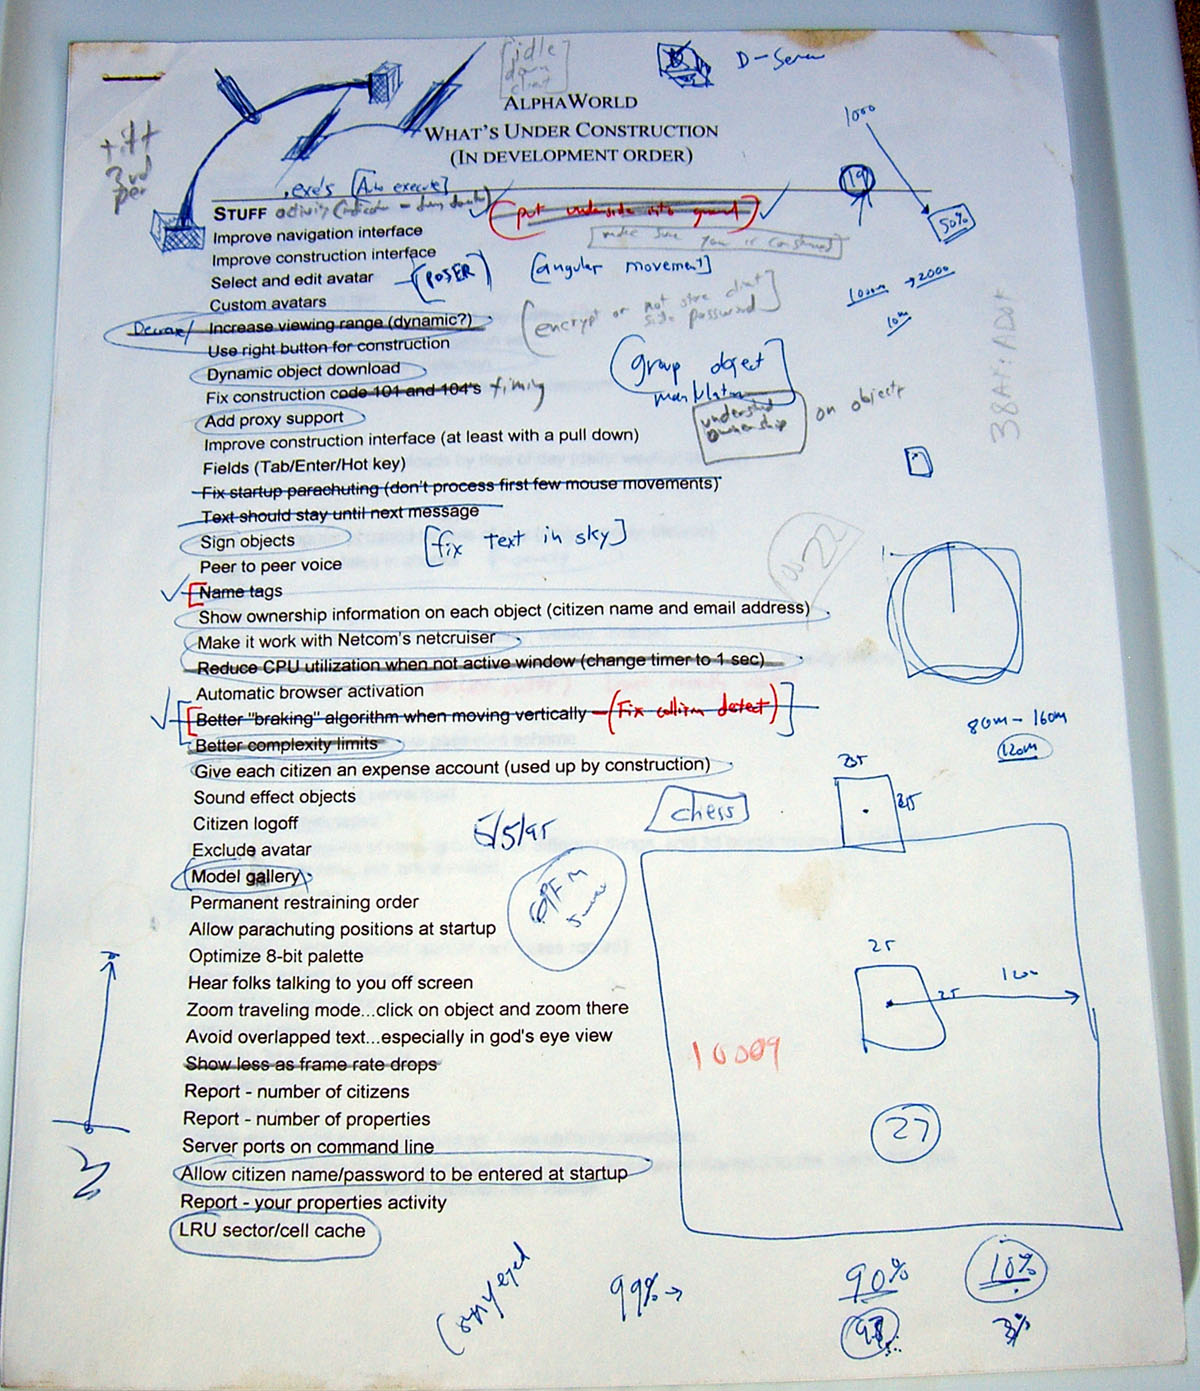 [idle
down
client]
D-Server
ALPHAWORLD
WHAT'S UNDER CONSTRUCTION
(IN DEVELOPMENT ORDER)
tilt
3rd
per
1000
50%
19
.exe's [Auto execute]
STUFF activity indicator -
(put underside into ground)
[make sure you is
Improve navigation interface
Improve construction interface
Select and edit avatar [POSER] [angular movement]
1000m → 2000
10m
Custom avatars
[encrypt or not store client
side password]
Decrease/ Increase viewing range (dynamic?)
Use right button for construction
(group object
Dynamic object download
Fix construction code 101 and 104's timing
ownership
on objects
38A4:AD0
Add proxy support
Improve construction interface (at least with a pull down)
Fields (Tab/Enter/Hot key)
Fix startup parachuting (don't process first few mouse movements)
Text should stay until next message
Sign objects
[fix text in sky]
Peer to peer voice
22
Name tags
Show ownership information on each object (citizen name and email address)
Make it work with Netcom's netcruiser
Reduce CPU utilization when not active window (change timer to 1 sec)
Automatic browser activation
Better "braking" algorithm when moving vertically - (Fix collision detect)
80m - 160m
120m
Better complexity limits
Give each citizen an expense account (used up by construction)
Sound effect objects
chess
Citizen logoff
5/5/95
Exclude avatar
Model gallery
Permanent restraining order
Allow parachuting positions at startup
Optimize 8-bit palette
25
Hear folks talking to you off screen
25
Zoom traveling mode...click on object and zoom there
Avoid overlapped text...especially in god's eye view
10009
Show less as frame rate drops
Report - number of citizens
Report - number of properties
27
Server ports on command line
Allow citizen name/password to be entered at startup
Report - your properties activity
LRU sector/cell cache
99% →
90%
10%
98
3%